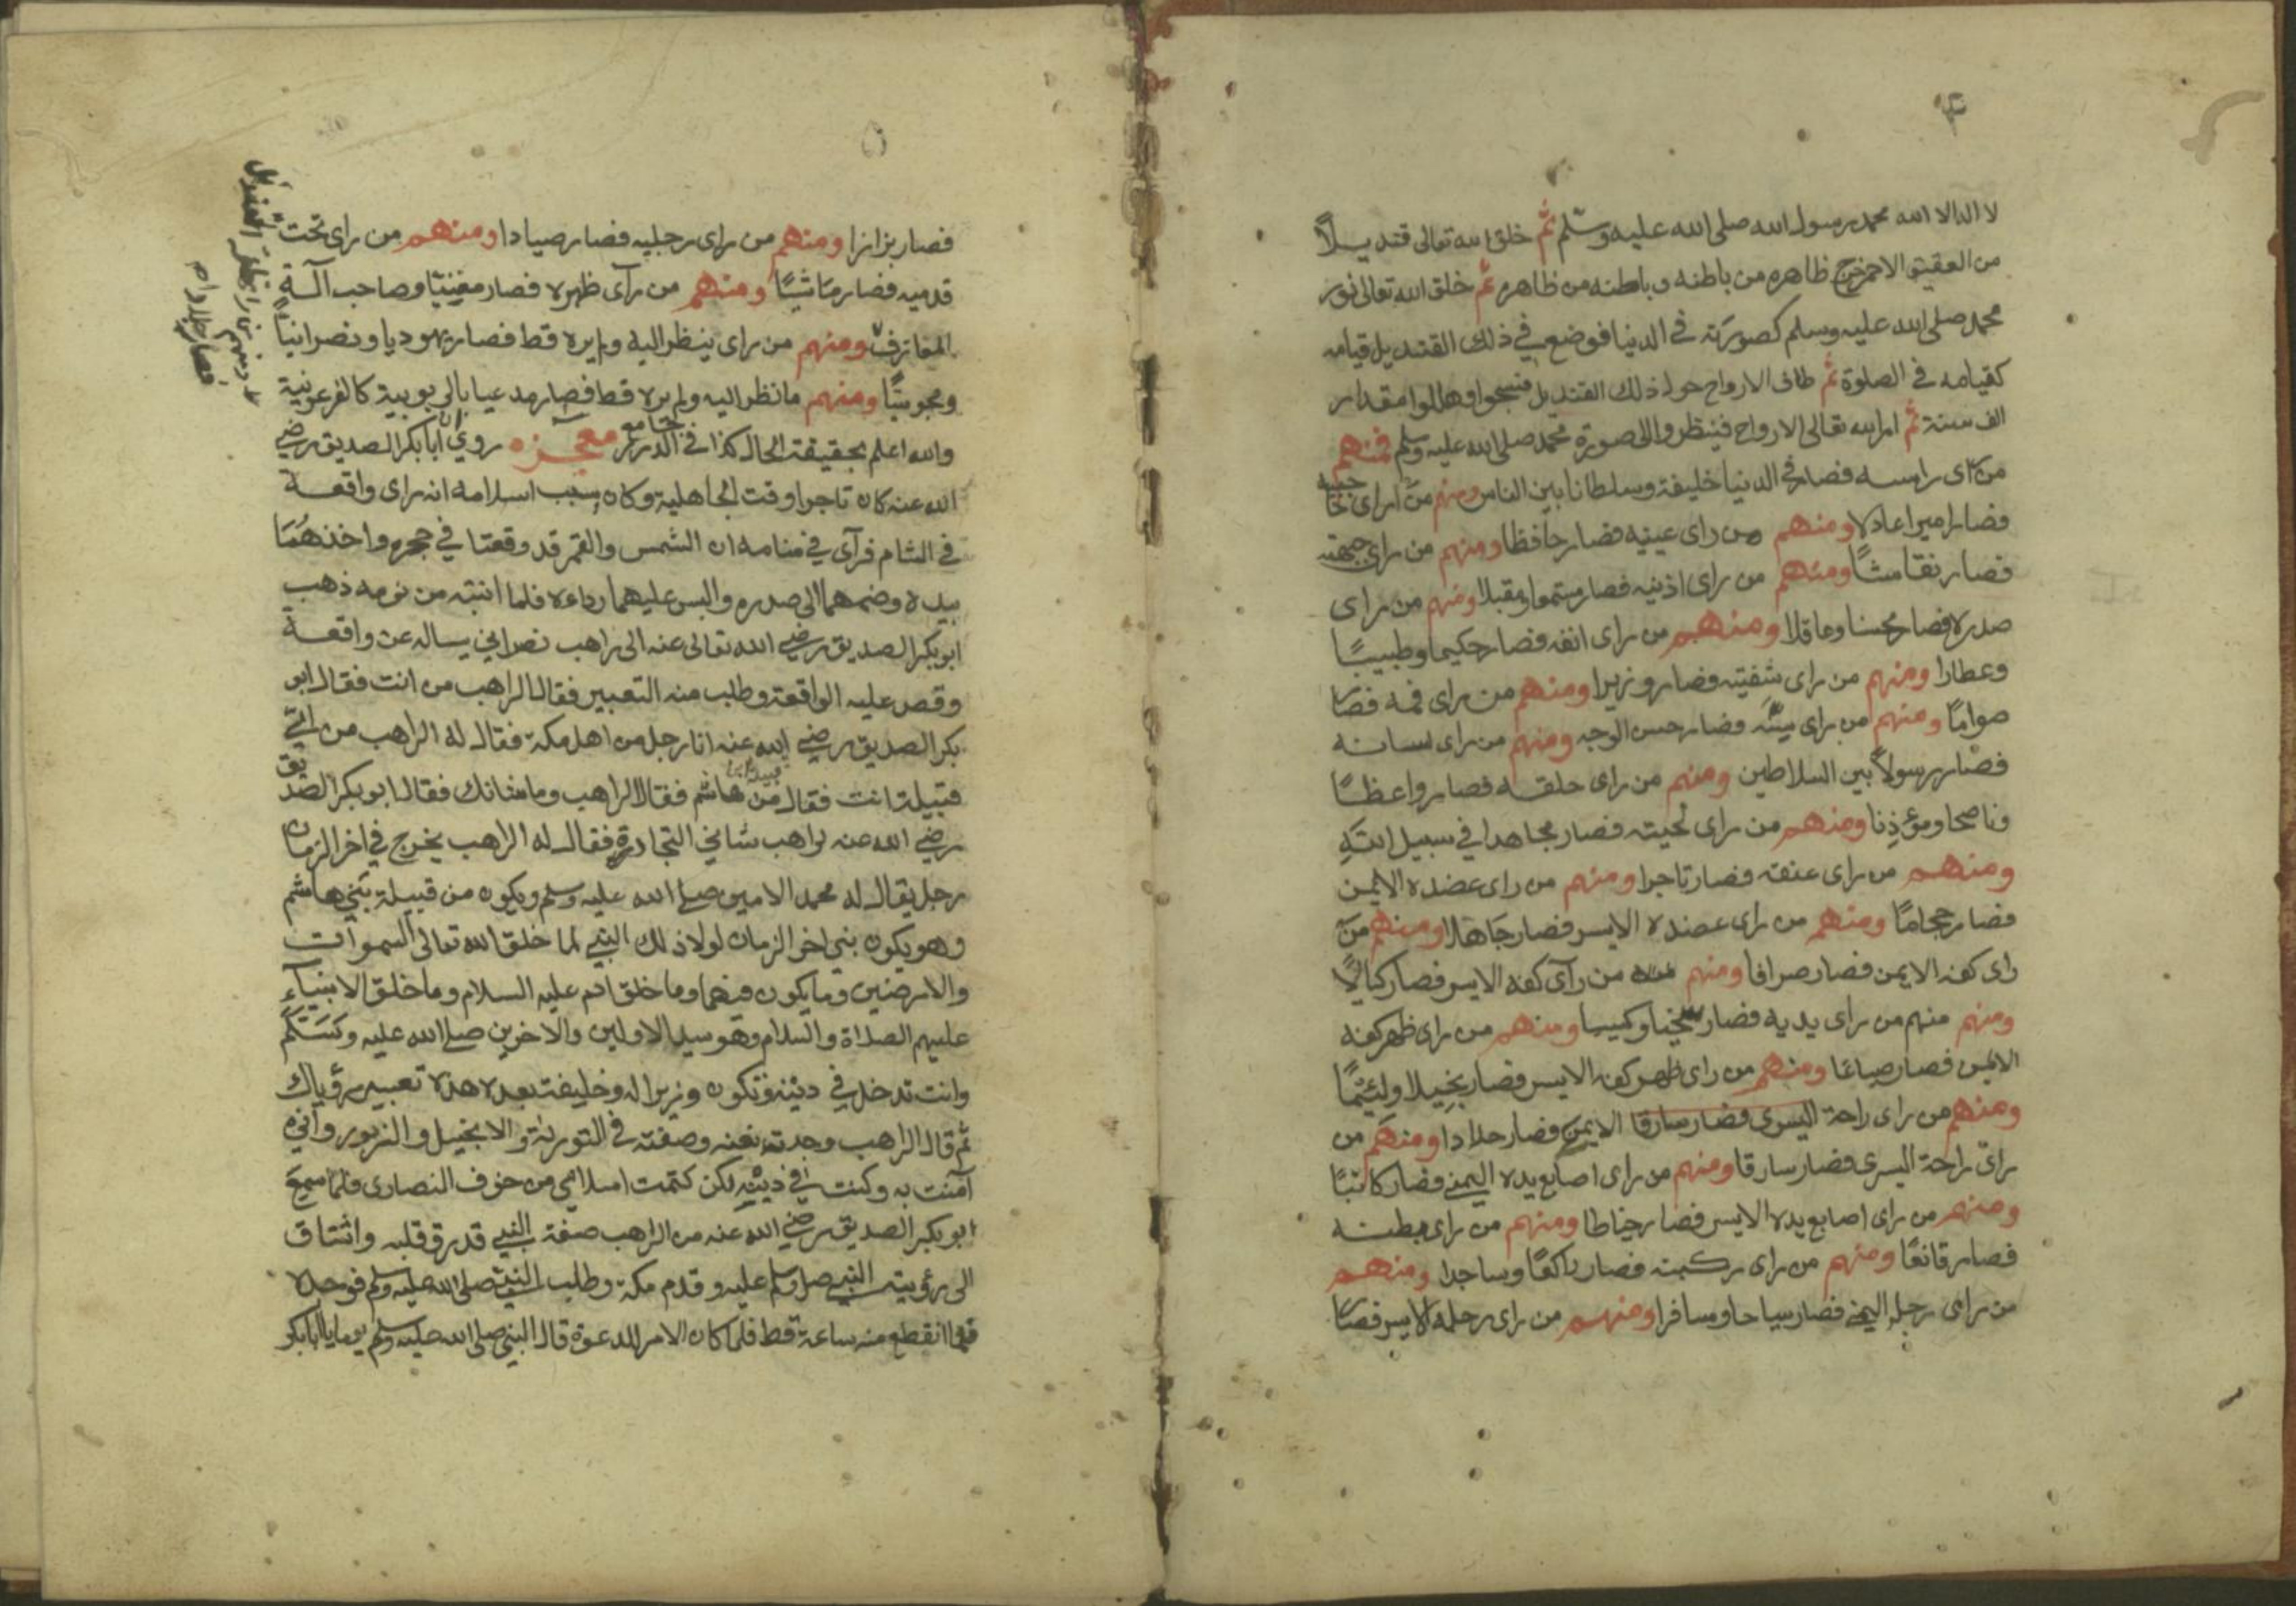 ٤
لا اله الا الله محمد رسول الله صلى الله عليه وسلم ثم خلق الله تعالى قنديلاً
من العقيق الاحمر خرج ظاهره من باطنه وباطنه من ظاهره ثم خلق الله تعالى نور
محمد صلى الله عليه وسلم كصورته في الدنيا فوضع في ذلك القنديل قيامه
كقيامه في الصلوة ثم طاف الارواح حول ذلك القنديل فسبحوا وهللوا مقدار
الف سنة ثم امر الله تعالى الارواح فينظروا الى صورة محمد صلى الله عليه وسلم فمنهم
من راى راسه فصار في الدنيا خليفة وسلطانا بين الناس ومنهم من راى حاجبيه
فصار اميرا عادلا ومنهم من راى عينيه فصار حافظا ومنهم من راى جبهته
فصار نقاشًا ومنهم من راى اذنيه فصار مستمعا ومقبلا ومنهم من راى
صدره فصار محسنا وعاقلا ومنهم من راى انفه فصار حكيما وطبيبًا
وعطارا ومنهم من راى شفتيه فصار وزيرا ومنهم من راى فمه فصار
صوامًا ومنهم من راى سنّه فصار حسن الوجه ومنهم من راى لسانه
فصار رسولاً بين السلاطين ومنهم من راى حلقه فصار واعظًا
وناصحا ومؤذنا ومنهم من راى لحيته فصار مجاهدا في سبيل الله
ومنهم من راى عنقه فصار تاجرا ومنهم من راى عضده الايمن
فصار حجامًا ومنهم من راى عضده الايسر فصار جاهلا ومنهم من
راى كفه الايمن فصار صرافا ومنهم من رآى كفه الايسر فصار كيالًا
ومنهم منهم من راى يديه فصار سخيا وكيسا ومنهم من راى ظهر كفه
الايمن فصار صباغا ومنهم من راى ظهر كفه الايسر فصار بخيلا ولئيمًا
ومنهم من راى راحة اليسرى فصار سارقا الايمن فصار حدادا ومنهم من
راى راحة اليسرى فصار سارقا ومنهم من راى اصابع يده اليمنى فصار كاتبًا
ومنهم من راى اصابع يده الايسر فصار خياطا ومنهم من راى بطنه
فصار قانعًا ومنهم من راى ركبته فصار راكعًا وساجدا ومنهم
من راى رجل اليمنى فصار سياحا ومسافرا ومنهم من راى رجله الايسر فصار
٥
فصار بزازا ومنهم من راى رجليه فصار صيادا ومنهم من راى تحت
قدميه فصار ماشيًا ومنهم من رآى ظهره فصار مغنيا وصاحب آلة
المعازف ومنهم من راى ينظر اليه ولم يره قط فصار يهوديا ونصرانياً
ومجوسيًا ومنهم ما نظر اليه ولم يره قط فصار مدعيا بالربوبية كالفرعونية
والله اعلم بحقيقة الحال كذا في جامع الدرر معجزه روي ان ابا بكر الصديق رضي
الله عنه كان تاجرا وقت الجاهلية وكان سبب اسلامه انه راى واقعة
في الشام فرآى في منامه ان الشمس والقمر قد وقعتا في حجره واخذهما
بيده وضمهما الى صدره والبس عليهما رداءه فلما انتبه من نومه ذهب
ابو بكر الصديق رضي الله تعالى عنه الى راهب نصراني يساله عن واقعة
وقص عليه الواقعة وطلب منه التعبير فقال الراهب من انت فقال ابو
بكر الصديق رضي الله عنه انا رجل من اهل مكة فقال له الراهب من اي
قبيلة انت فقال من هاشم فقال الراهب وما شانك فقال ابو بكر الصديق
رضي الله عنه لراهب شاني التجارة فقال له الراهب يخرج في اخر الزمان
رجل يقال له محمد الامين صلى الله عليه وسلم ويكون من قبيلة بني هاشم
وهو يكون نبي اخر الزمان لولا ذلك النبي لما خلق الله تعالى السموات
والارضين وما يكون فيهما وما خلق ادم عليه السلام وما خلق الانبياء
عليهم الصلاة والسلام وهو سيد الاولين والاخرين صلى الله عليه وسلم
وانت تدخل في دينه وتكون وزيرا له وخليفة بعده هذا تعبير رؤياك
ثم قال الراهب وجدته نعته وصفته في التورية والانجيل والزبور واني
آمنت به وكنت في دينه لكن كتمت اسلامي من خوف النصارى فلما سمع
ابو بكر الصديق رضي الله عنه من الراهب صفة النبي قد رق قلبه واشتاق
الى رؤيته النبي صلى وسلم عليه وقدم مكة وطلب النبي صلى الله عليه وسلم فوجده
فما انقطع منه ساعة قط فلما كان الامر للدعوة قال النبي صلى الله عليه وسلم يوما يا ابا بكر